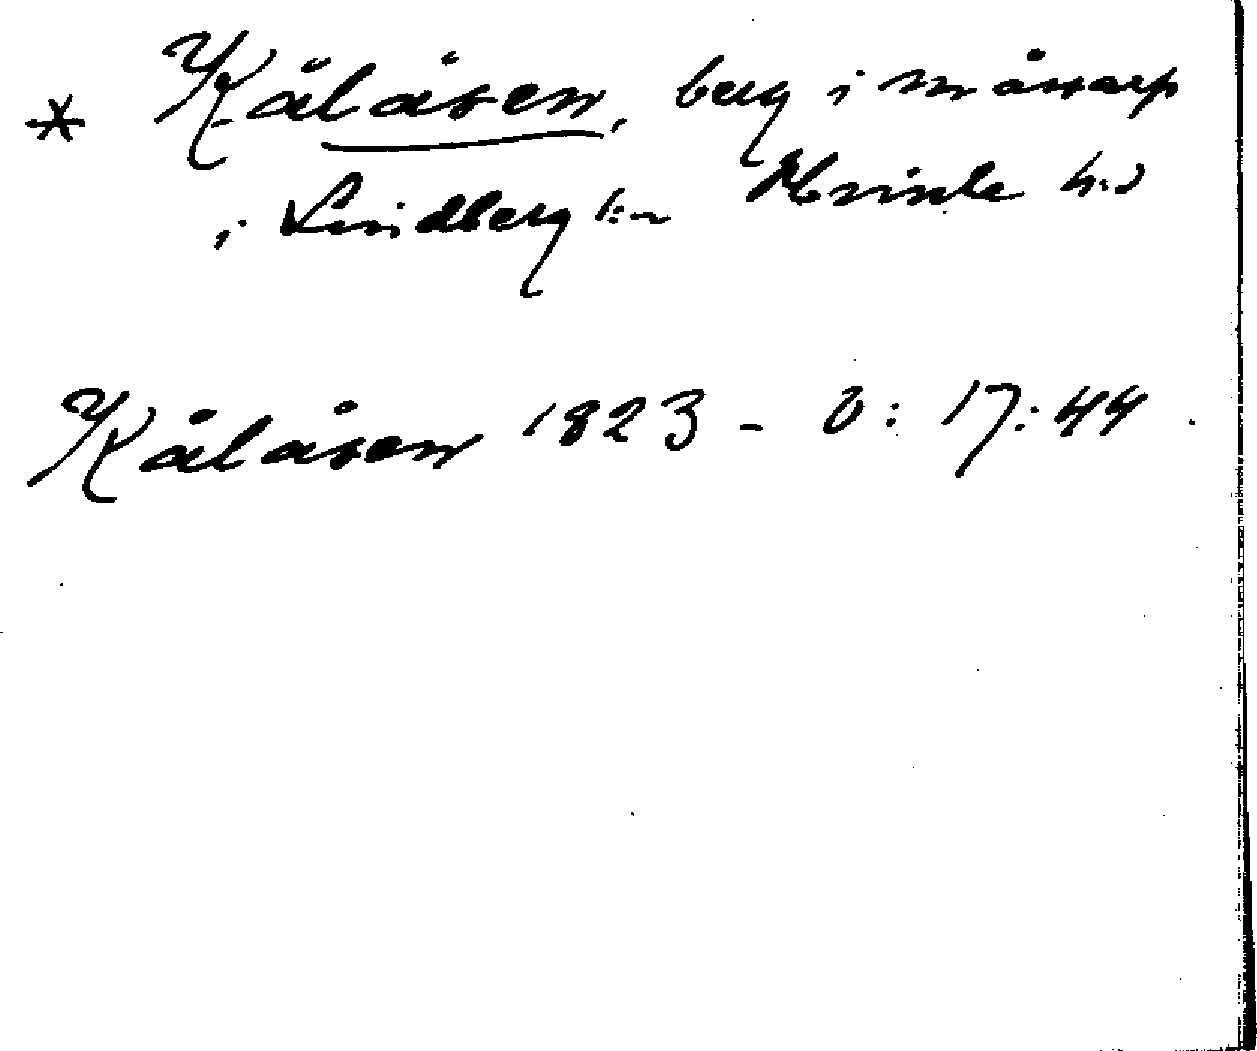 * Kålåsen, berg i Måsarp
i Lindberg k:n Himle h:d
Kålåsen 1823 - O: 17:44.